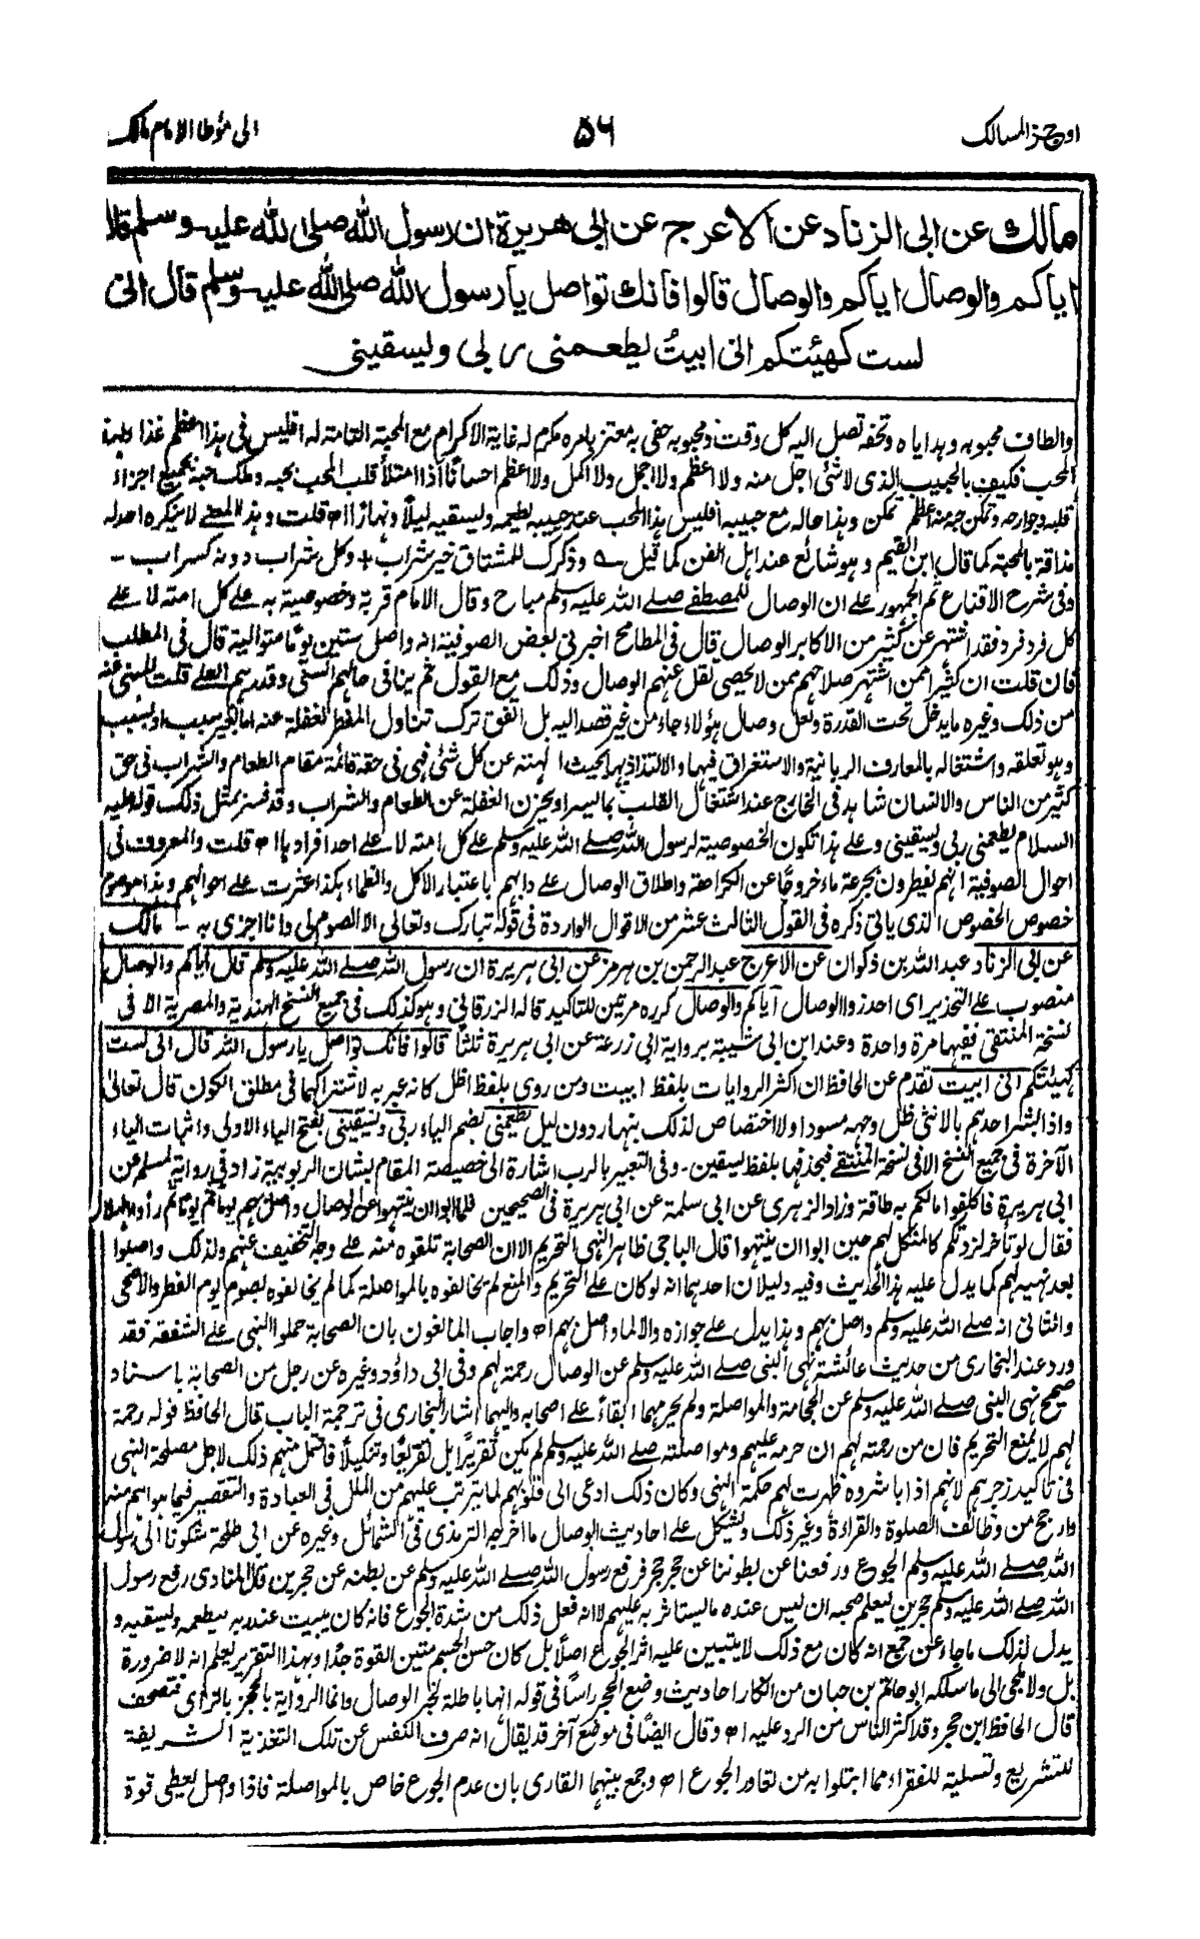 اوجز المسالك ۵۶ الى مؤطا الامام مالك
مالك عن ابى الزناد عن الاعرج عن ابى هريرة ان رسول الله صلى الله عليه وسلم قال
اياكم والوصال اياكم والوصال قالوا فانك تواصل يا رسول الله صلى الله عليه وسلم قال انى
لست كهيئتكم انى ابيتُ يطعمنى ربى ويسقينى
والطاف محبوبه وهداياه وتحفه تصل اليه كل وقت ومحبوبه حفى به معتن بامره مكرم له غاية الاكرام مع المحبة التامة له افليس فى هذا اعظم غذا لهذا
المحب فكيف بالحبيب الذى لا شئ اجل منه ولا اعظم ولا اجمل ولا اكمل ولا اعظم احسانًا اذا امتلأ قلب المحب بحبه وملك حبه جميع اجزاء
قلبه وجوارحه وتمكن حبه منه اعظم تمكن وهذا حاله مع حبيبه افليس هذا المحب عند حبيبه يطعمه ويسقيه ليلاً ونهارًا اھ قلت وهذا المعنى لا ينكره احد له
مذاقة بالمحبة كما قال ابن القيم وهو شائع عند اهل الفن كما قيل ؎ وذكرك للمشتاق خير شراب + وكل شراب دونه كسراب -
وفى شرح الاقناع ثم الجمهور على ان الوصال للمصطفى صلى الله عليه وسلم مباح وقال الامام قربة وخصوصية به على كل امته لا على
كل فرد فرد فقد اشتهر عن كثير من الاكابر الوصال قال فى المطامح اخبرنى بعض الصوفية انه واصل ستين يومًا متوالية قال فى المطلب
فان قلت ان كثيرا ممن اشتهر صلاحهم ممن لا يحصى نقل عنهم الوصال وذلك مع القول بحرمته ينافى حالهم السنى وقدرهم العلى قلت
من ذلك وغيره ما يدخل تحت القدرة ولعل وصال هؤلاء جاء من غير قصد اليه بل اتفق ترك تناول المفطر لغفلة عنه اما لغير سبب او بسبب
وهو تعلقه واشتغاله بالمعارف الربانية والاستغراق فيها والالتذاذ بها بحيث الهته عن كل شئ فهى فى حقه قائمة مقام الطعام والشراب فى حق
كثير من الناس والانسان شاهد فى الخارج عند اشتغال القلب بما يسر او يحزن الغفلة عن الطعام والشراب وقد فسر بمثل ذلك قوله عليه
السلام يطعمنى ربى ويسقينى وعلى هذا تكون الخصوصية لرسول الله صلى الله عليه وسلم على كل امته لا على احد افرادها اھ قلت والمعروف فى
احوال الصوفية انهم يفطرون بجرعة ماء خروجًا عن الكراهة واطلاق الوصال على دابهم باعتبار الاكل والطعام هكذا عثرت على احوالهم وهذا هو صوم
خصوص الخصوص الذى ياتى ذكره فى القول الثالث عشر من الاقوال الواردة فى قوله تبارك وتعالى الا الصوم لى وانا اجزى به - مالك
عن ابى الزناد عبد الله بن ذكوان عن الاعرج عبد الرحمن بن هرمز عن ابى هريرة ان رسول الله صلى الله عليه وسلم قال اياكم والوصال
منصوب على التحذير اى احذروا الوصال اياكم والوصال كرره مرتين للتاكيد قاله الزرقانى وهو كذلك فى جميع النسخ الهندية والمصرية الا فى
نسخة المنتقى ففيها مرة واحدة وعند ابن ابى شيبة برواية ابى زرعة عن ابى هريرة ثلثًا قالوا فانك تواصل يا رسول الله قال انى لست
كهيئتكم انى ابيت تقدم عن الحافظ ان اكثر الروايات بلفظ ابيت ومن روى بلفظ اظل كانه عبر به لاشتراكهما فى مطلق الكون قال تعالى
واذا بشر احدهم بالانثى ظل وجهه مسودا ولا اختصاص لذلك بنهار دون ليل يطعمنى بضم الياء ربى ويسقينى بفتح الياء الاولى واثبات الياء
الآخرة فى جميع النسخ الا فى نسخة المنتقى فبحذفها بلفظ يسقين - وفى التعبير بالرب اشارة الى خصيصة المقام بشان الربوبية زاد فى رواية لمسلم عن
ابى هريرة فاكلفوا ما لكم به طاقة وزاد الزهرى عن ابى سلمة عن ابى هريرة فى الصحيحين فلما ابوا ان ينتهوا عن الوصال واصل بهم يومًا ثم يومًا ثم رأوا الهلال
فقال لو تأخر لزدتكم كالمنكل لهم حين ابوا ان ينتهوا قال الباجى ظاهر النهى التحريم الا ان الصحابة تلقوه منه على وجه التخفيف عنهم ولذلك واصلوا
بعد نهيه لهم كما يدل عليه هذا الحديث وفيه دليلان احدهما انه لو كان على التحريم والمنع لم تخالفوه بالمواصلة كما لم يخالفوه بصوم يوم الفطر والاضحى
والثانى انه صلى الله عليه وسلم واصل بهم وهذا يدل على جوازه والا لما واصل بهم اھ واجاب المانعون بان الصحابة حملوا النهى على الشفقة فقد
ورد عند البخارى من حديث عائشة نهى النبى صلى الله عليه وسلم عن الوصال رحمة لهم وفى ابى داؤد وغيره عن رجل من الصحابة باسناد
صحيح نهى النبى صلى الله عليه وسلم عن الحجامة والمواصلة ولم يحرمهما ابقاءً على اصحابه واليهما اشار البخارى فى ترجمة الباب قال الحافظ قوله رحمة
لهم لا يمنع التحريم فان من رحمته لهم ان حرمه عليهم ومواصلته صلى الله عليه وسلم لم يكن تقريرًا بل تقريعًا وتنكيلاً فاحتمل منهم ذلك لاجل مصلحة النهى
فى تاكيد زجرهم لانهم اذا باشروه ظهرت لهم حكمة النهى وكان ذلك ادعى الى قلوبهم لما يترتب عليهم من الملل فى العبادة والتقصير فيما هو اهم منه
وارجح من وظائف الصلوة والقراءة وغير ذلك ويشكل على احاديث الوصال ما اخرجه الترمذى فى الشمائل وغيره عن ابى طلحة شكونا الى رسول
الله صلى الله عليه وسلم الجوع ورفعنا عن بطوننا عن حجر حجر فرفع رسول الله صلى الله عليه وسلم عن بطنه عن حجرين قال المنادى رفع رسول
الله صلى الله عليه وسلم حجرين ليعلم صحبه ان ليس عنده ما يستاثر به عليهم لا انه فعل ذلك من شدة الجوع فانه كان يبيت عند ربه يطعمه ويسقيه و
يدل لذلك ما جاء عن جمع انه كان مع ذلك لا يتبين عليه اثر الجوع اصلاً بل كان حسن الجسم متين القوة جدًا وبهذا التقرير يعلم انه لا ضرورة
بل ولا ملجئ الى ما سلكه ابو حاتم بن حبان من انكار احاديث وضع الحجر راسًا فى قوله انها باطلة لخبر الوصال وانما الرواية بالحجز بالزاى فتصحف
قال الحافظ ابن حجر وقد اكثر الناس من الرد عليه اھ وقال ايضًا فى موضع آخر قد يقال انه صرف النفس عن تلك التغذية الشريفة
للتشريع وتسلية للفقراء مما ابتلوا به من تعاور الجوع اھ وجمع بينهما القارى بان عدم الجوع خاص بالمواصلة فاذا واصل يعطى قوة